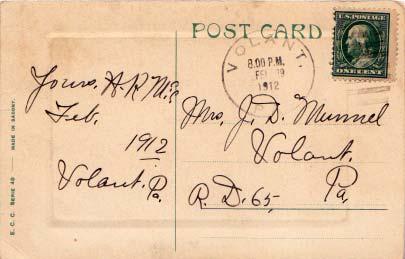 POST CARD
U.S. POSTAGE
ONE CENT
VOLANT,
8.00 P.M.
FEB
1912
Yours, A.R. McC
Feb.
1912
Volant, Pa.
Mrs. J. D. Munnel
Volant.
R. D. 65, Pa,
E. C. C. SERIE 40 — MADE IN SAXONY.